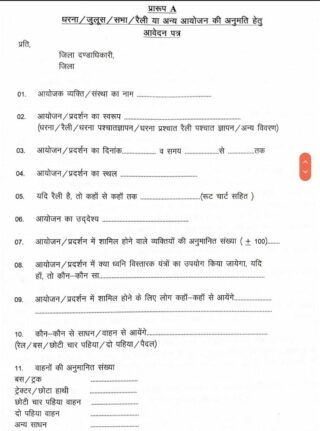 प्रारूप A
धरना/जुलूस/सभा/रैली या अन्य आयोजन की अनुमति हेतु
आवेदन पत्र
प्रति,
जिला दण्डाधिकारी,
जिला
01. आयोजक व्यक्ति/संस्था का नाम ..............................
02. आयोजन/प्रदर्शन का स्वरूप ..............................
(धरना/रैली/धरना पश्चातज्ञापन/धरना प्रश्चात रैली पश्चात ज्ञापन/अन्य विवरण)
03. आयोजन/प्रदर्शन का दिनांक............... व समय ...............से ..........तक
04. आयोजन/प्रदर्शन का स्थल ..............................
05. यदि रैली है, तो कहाॅ से कहाॅ तक ......................(रूट चार्ट सहित )
06. आयोजन का उद्देश्य ..............................
07. आयोजन/प्रदर्शन में शामिल होने वाले व्यक्तियों की अनुमानित संख्या ( ± 100).....
08. आयोजन/प्रदर्शन में क्या ध्वनि विस्तारक यंत्रों का उपयोग किया जायेगा, यदि
हाॅ, तो कौन–कौन सा..............................
09. आयोजन/प्रदर्शन में शामिल होने के लिए लोग कहाॅ–कहाॅ से आयेंगे...............
..............................
10. कौन–कौन से साधन/वाहन से आयेंगे..............................
(रेल/बस/छोटी चार पहिया/दो पहिया/पैदल)
11. वाहनों की अनुमानित संख्या
बस/ट्रक ...............
ट्रेक्टर/छोटा हाथी ...............
छोटी चार पहिया वाहन ...............
दो पहिया वाहन ...............
अन्य साधन ...............